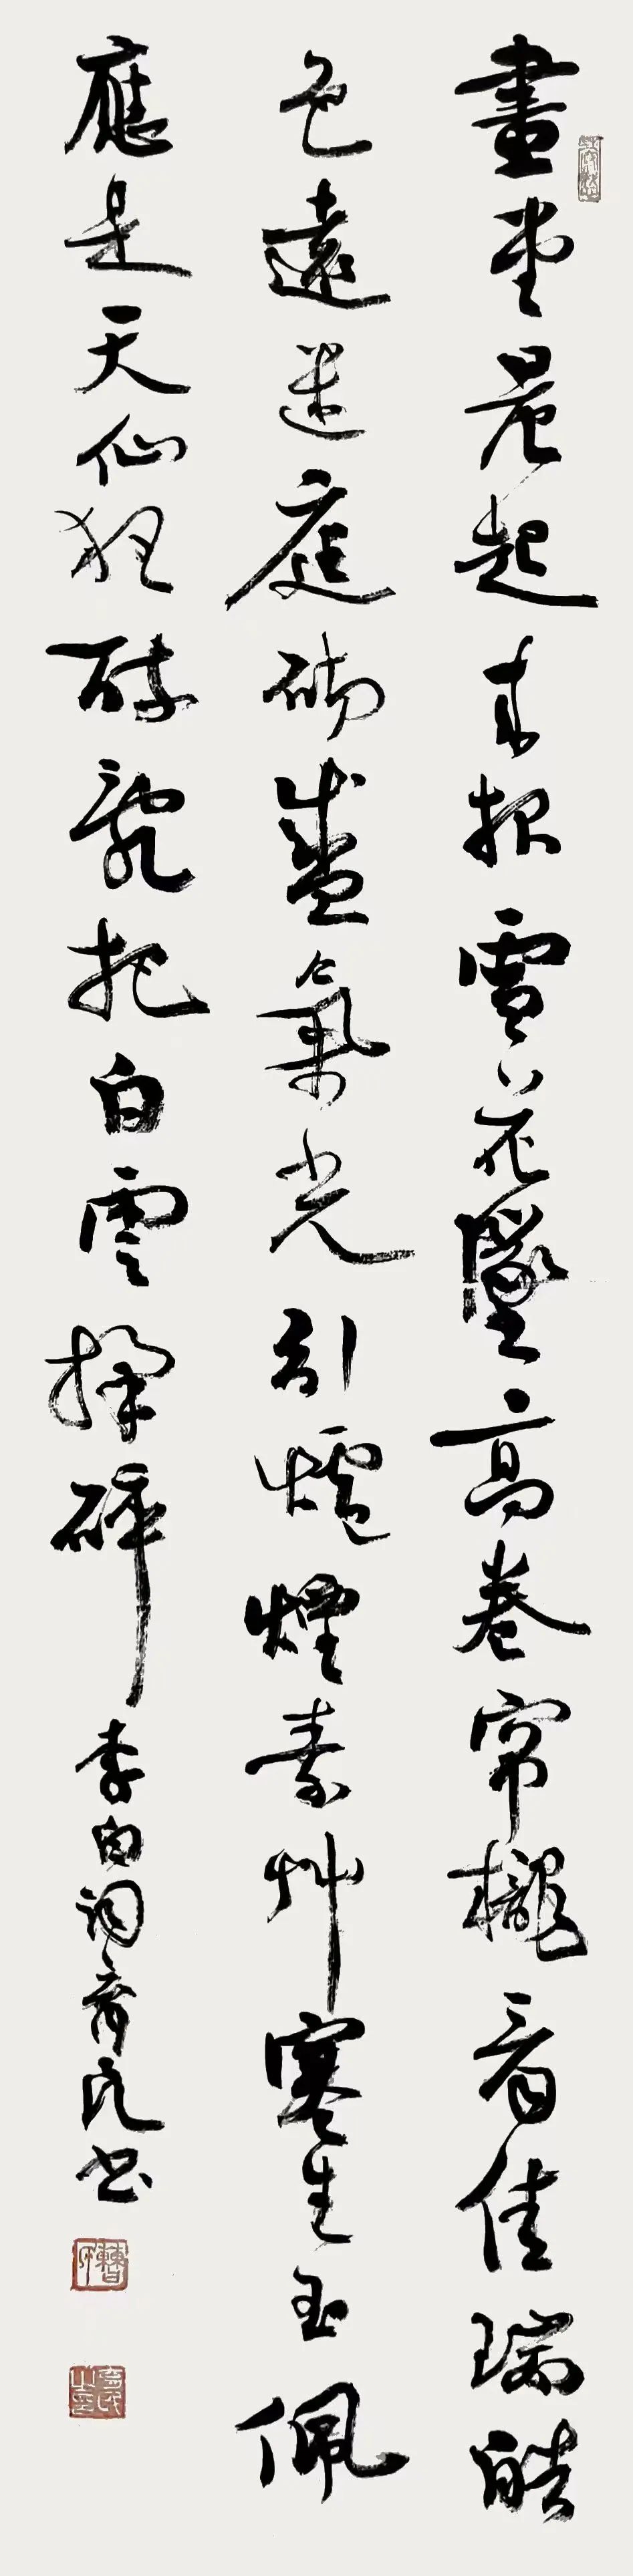 畫堂晨起来报雪花墜高卷帘櫳看佳瑞皓
色遠迷庭砌盛氣光引爐煙素艸寒生玉佩
應是天仙狂醉亂把白雲揉碎 李白词 书